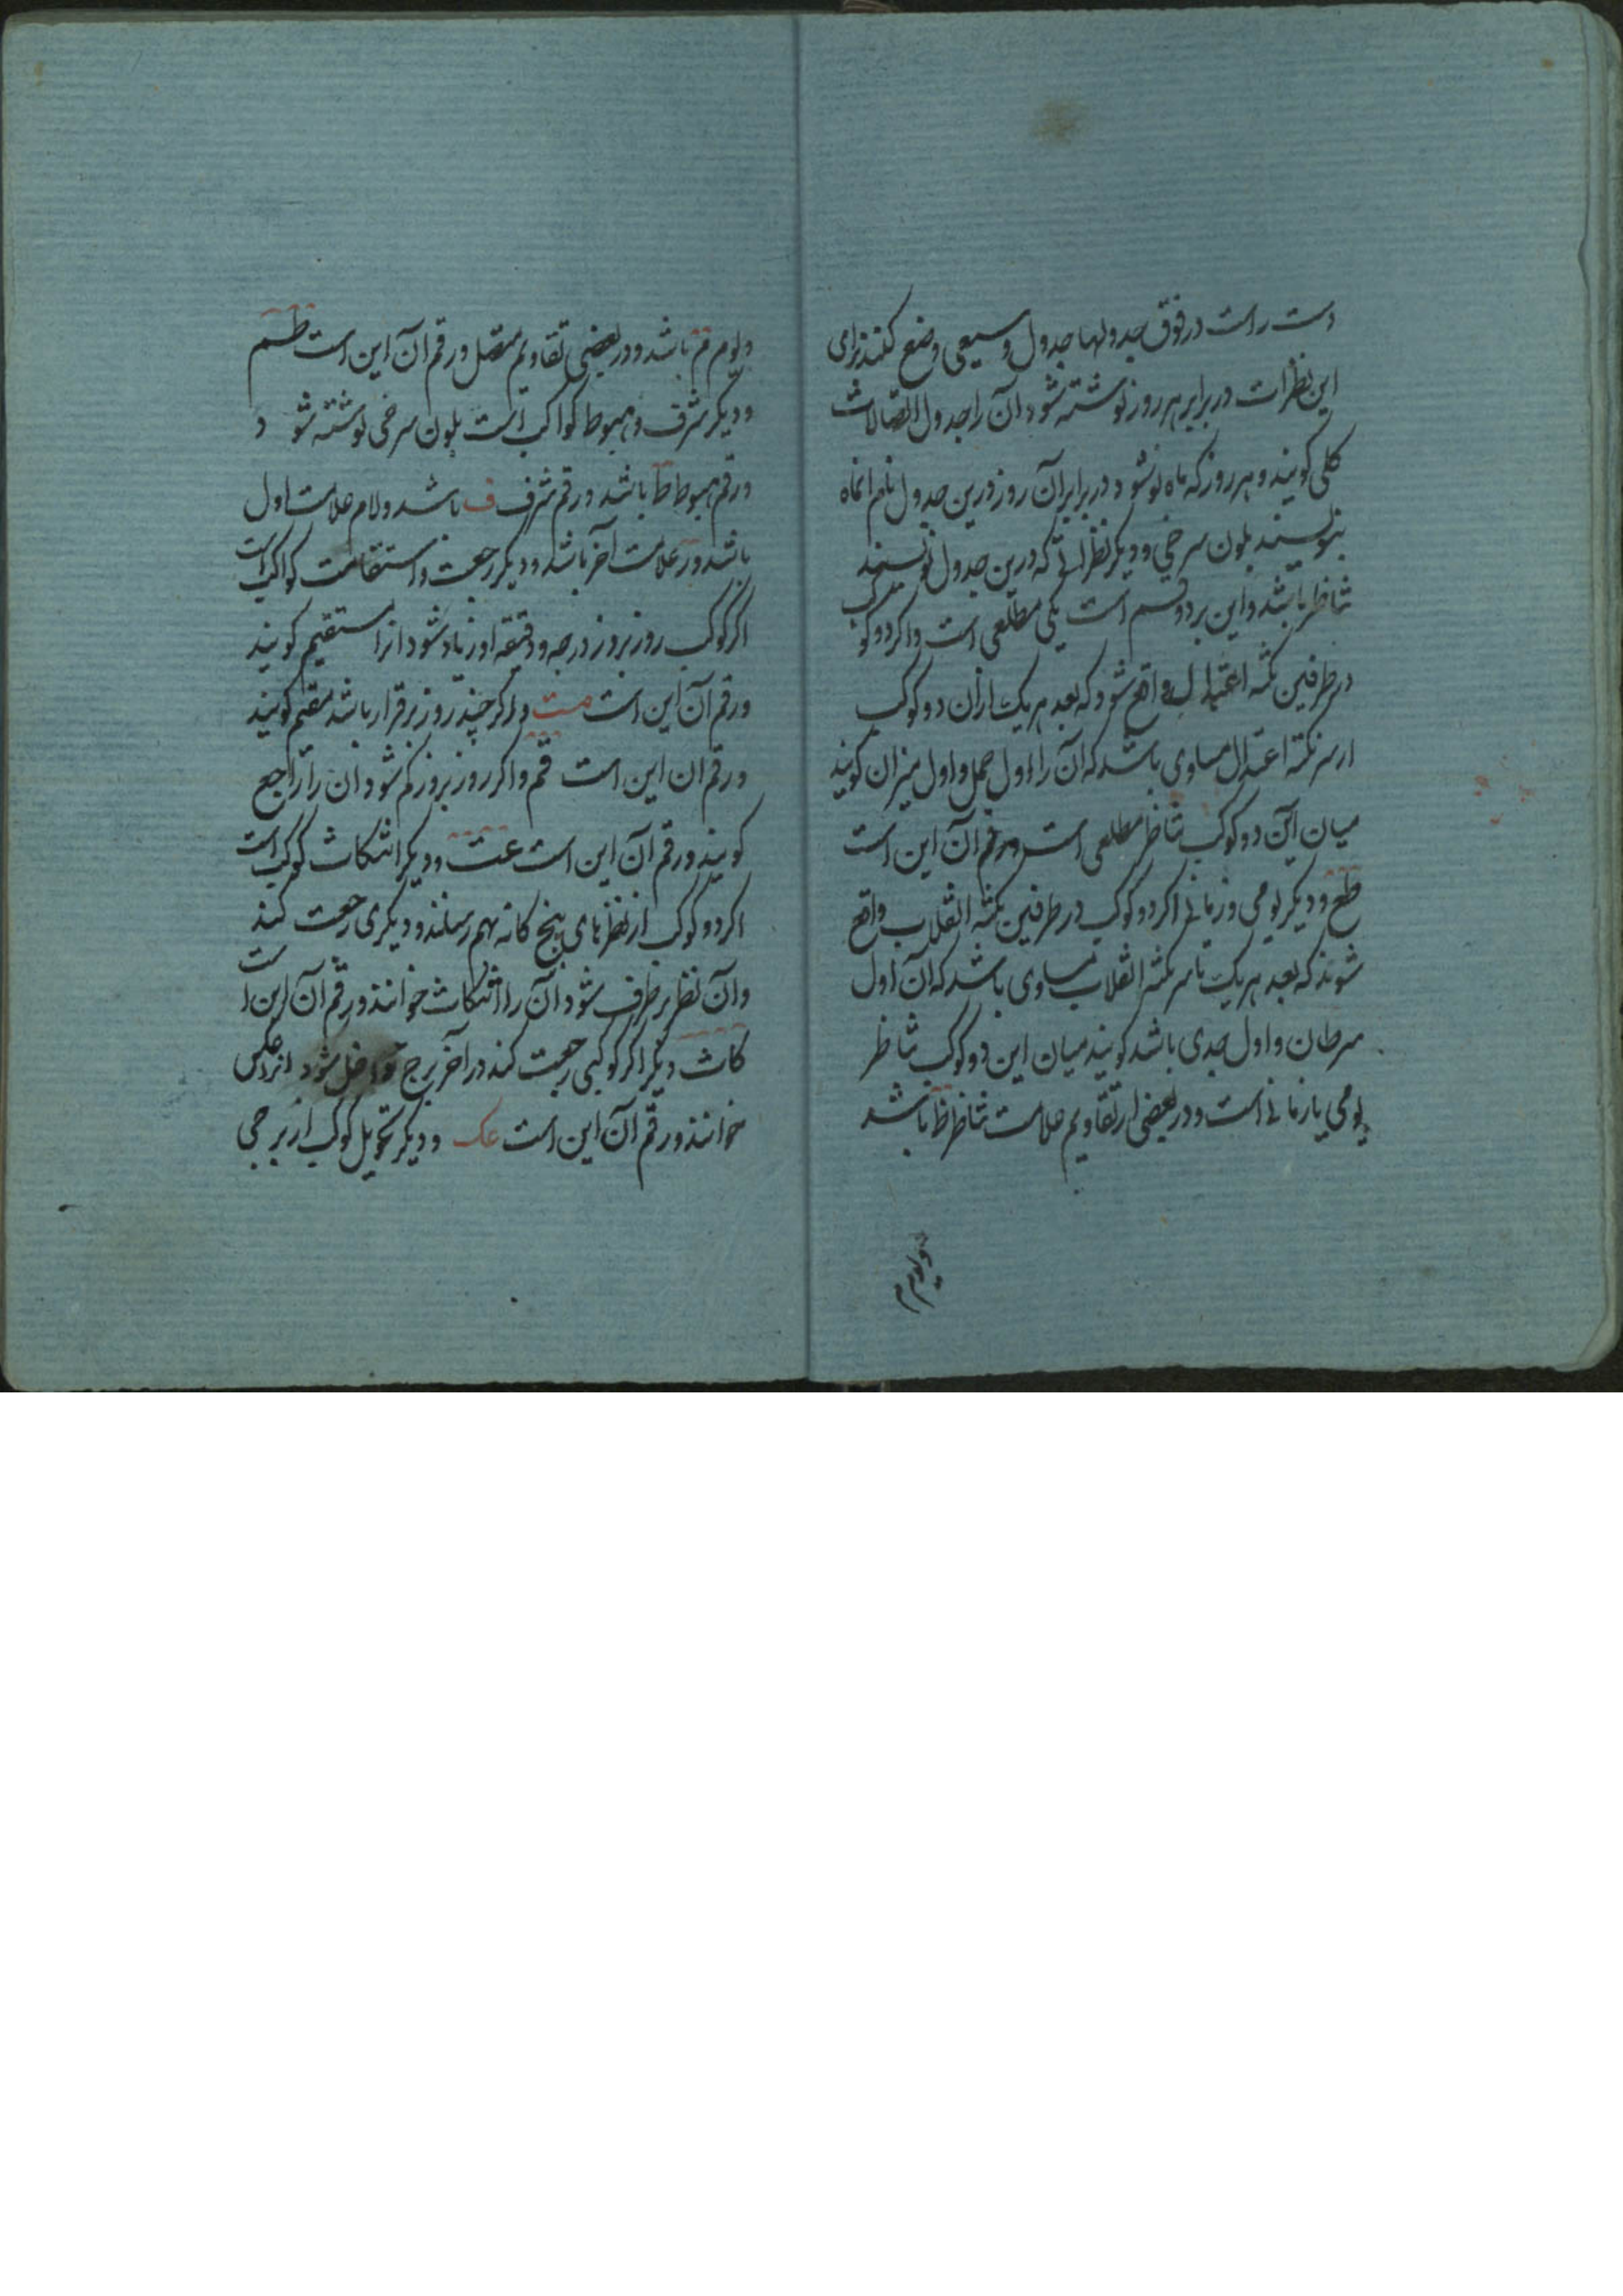 دست راست در فوق جدولها جدول وسیعی وضع کنند برای
این نظرات در برابر هر روز نوشته شود آن را جدول اتصالات
کلی کویند و هر روز که ماه نو شود در برابر آن روز درین جدول نام انماه
بنویسند بلون سرخی و دیکر نظراتی که درین جدول نویسند
تناظر باشد و این بر دو قسم است یکی مطلعی است واکر دو کوکب
در طرفین نکته اعتدال واقع شود که بعد هر یک ازان دو کوکب
از سر نکته اعتدال مساوی باشد که آن را اول حمل و اول میزان کویند
میان این دو کوکب تناظر مطلعی است ورقم آن این است
طع و دیکر یومی و زمانی اکر دو کوکب در طرفین نکته انقلاب واقع
شوند که بعد هر یک تا سر نکته انقلاب مساوی باشد که آن اول
سرطان و اول جدی باشد کویند میان این دو کوکب تناظر
یومی یا زمانی است و در بعضی از تقاویم علامت تناظر ظ باشد
ویوم م
ویوم م باشد و در بعضی تقاویم متصل ورقم آن این است طم
و دیکر شرف و هبوط کواکب است بلون سرخی نوشته شو د
ورقم هبوط ط باشد ورقم شرف ف باشد ولام علامت اول
باشد ور علامت آخر باشد و دیکر رجعت و استقامت کواکب است
اکر کوکب روز بروز درجه و دقیقه او زیاد شود انرا مستقیم کویند
ورقم آن این است مت و اکر چند روز برقرار باشد مقیم کویند
ورقم ان این است قم واکر روز بروز کم شود ان را راجع
کویند ورقم آن این است عت و دیکر انتکاث کوکب است
اکر دو کوکب از نظرهای پنج کانه بهم رسانند و دیکری رجعت کند
وآن نظر برطرف شود آن را انتکاث خوانند ورقم آن این است
کاث دیکر اکر کوکبی رجعت کند در آخر برج داخل شود انرا عکس
خوانند ورقم آن این است عک و دیکر تحویل کوکب از برجی